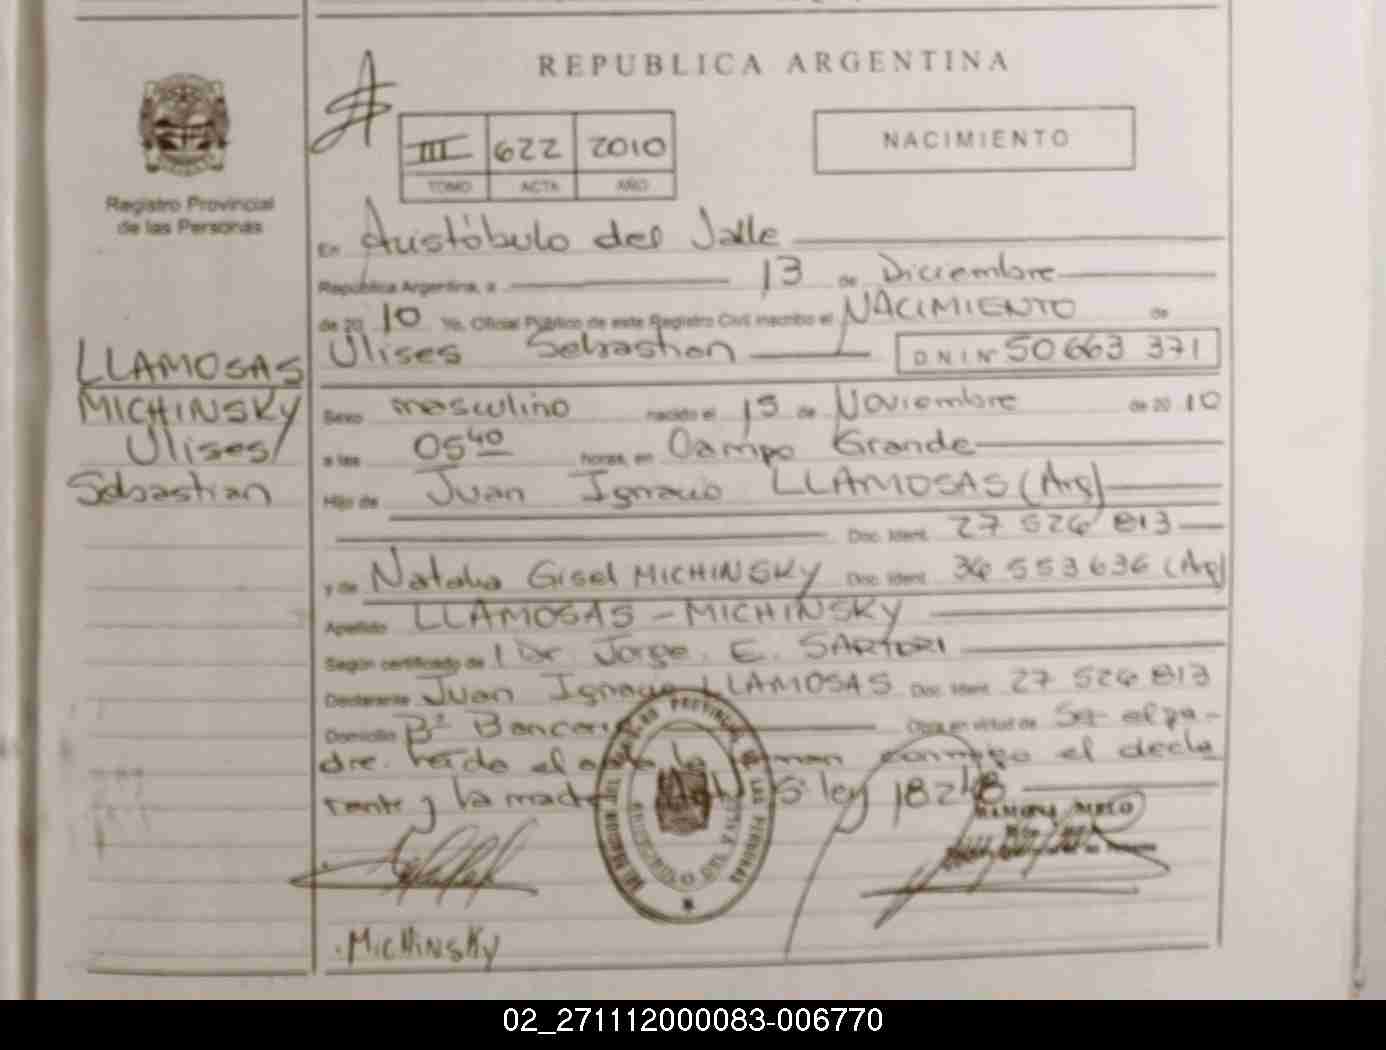 REPUBLICA ARGENTINA
III 622 2010
TOMO ACTA AÑO
NACIMIENTO
Registro Provincial
de las Personas
LLAMOSAS
MICHINSKY
Ulises
Sebastian
En Aristóbulo del Valle
República Argentina, a 13 de Diciembre
de 20 10 Yo, Oficial Público de este Registro Civil inscribo el NACIMIENTO de
Ulises Sebastian D N I Nº 50 663 371
Sexo masculino nacido el 15 de Noviembre de 20 10
a las 05 40 horas, en Campo Grande
Hijo de Juan Ignacio LLAMOSAS (Arg)
Doc. Ident. 27 526 813
y de Natalia Gisel MICHINSKY Doc. Ident. 36 553 636 (Arg)
Apellido LLAMOSAS - MICHINSKY
Según certificado de Dr Jorge. E. SARTORI
Declarante Juan Ignacio LLAMOSAS Doc. Ident. 27 526 813
Domicilio Bº Bancario Obra en virtud de Ser el pa-
dre. Leído el acta la firman conmigo el decla
rante y la madre 5 ley 18248
RAMONA MELO
MICHINSKY
02_271112000083-006770